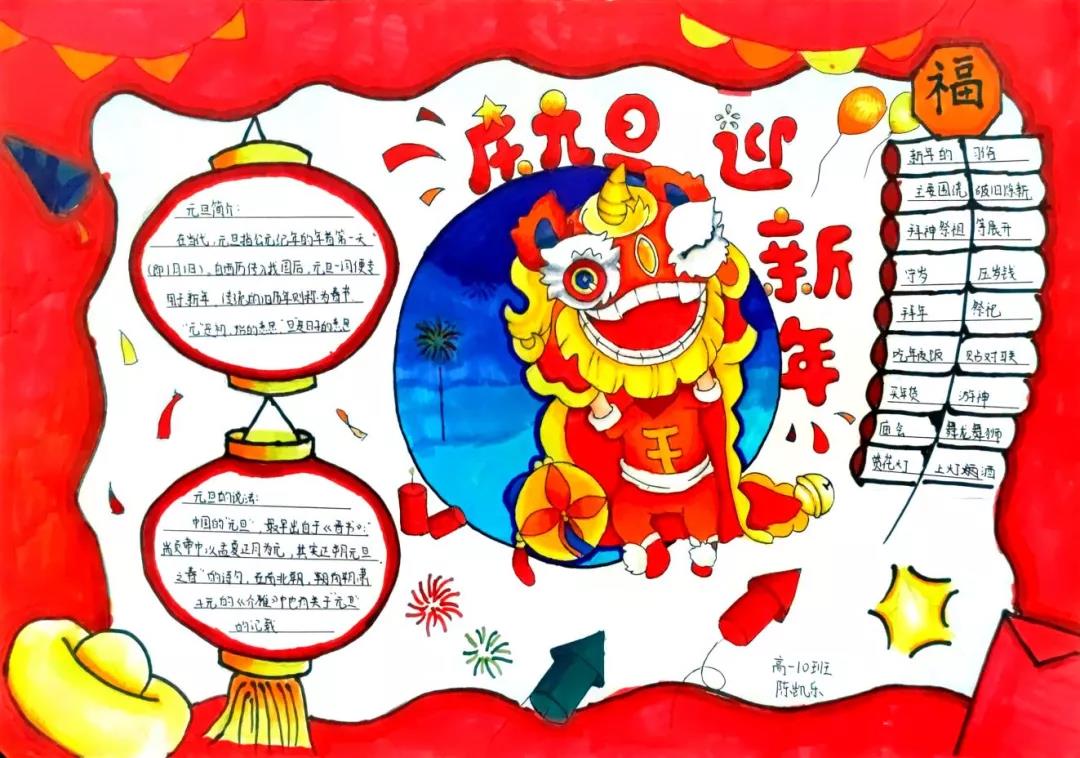 庆元旦
迎
新
年
福
元旦简介:
在当代,元旦指公元纪年的年首第一天
(即1月1日)。自西历传入我国后,元旦一词便专
用于新年,传统的旧历年则称为春节
"元"是初,始的意思"旦"是日子的意思
元旦的说法:
中国的"元旦"最早出自于《晋书》:"
当页帝中以孟夏正月为元,其实正朝元旦
之春"的语句,在南北朝,
元的《介雅》中也有关于"元旦"
的记载
新年的 习俗
主要围绕 破旧陈新
拜神祭祖 等展开
守岁 压岁钱
拜年 祭祀
吃年夜饭 贴对联
买年货 游神
庙会 舞龙舞狮
赏花灯 上灯酒
高一10班
陈凯乐